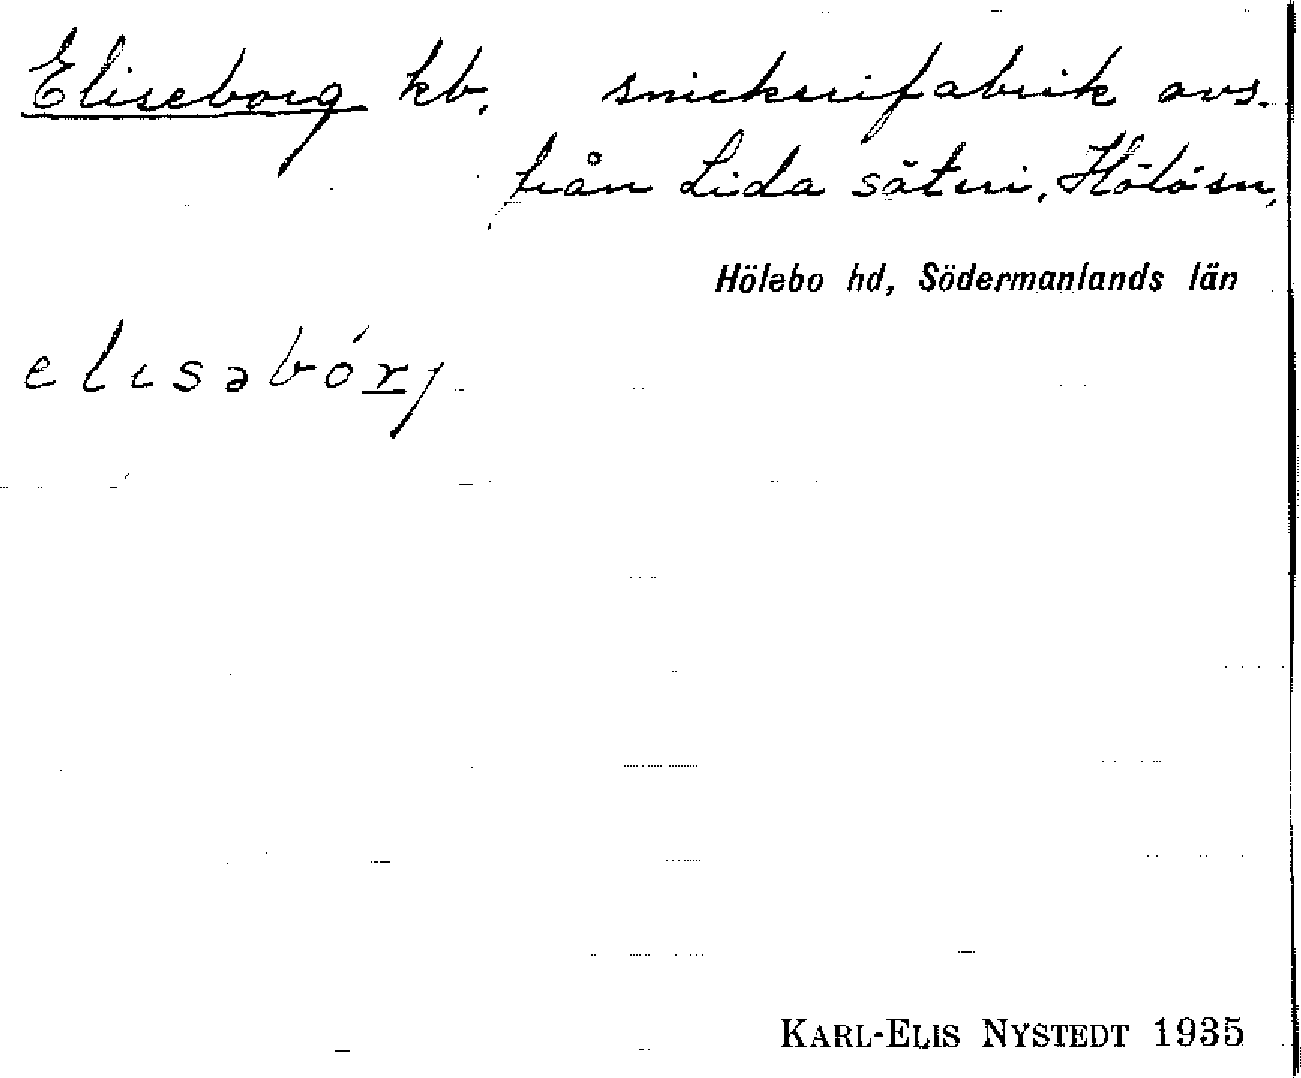 Eliseborg kb. snickerifabrik avs.
från Lida säteri, Hölö sn,
Hölebo hd, Södermanlands län
elɩsəbórj
KARL-ELIS NYSTEDT 1935